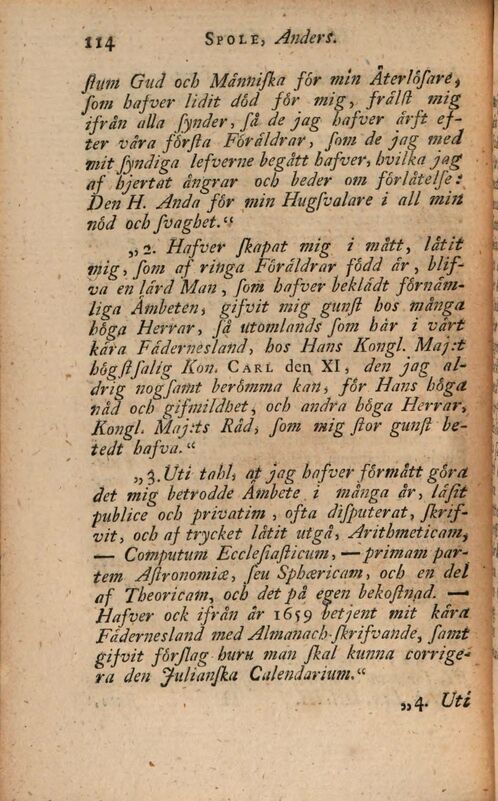 114 SPOLE, Anders.
ſtum Gud och Månniſka för min Återlöſare,
ſom hafver lidit död för mig, frålſt mig
ifrån alla ſynder, ſå de jag hafver årft ef-
ter våra förſta Föråldrar, ſom de jag med
mit ſyndiga lefverne begått hafver, hvilka jag
af hjertat ångrar och beder om förlåtelſe:
Den H. Anda för min Hugſvalare i all min
nöd och ſvaghet.“
„2. Hafver ſkapat mig i mått, låtit
mig, ſom af ringa Föråldrar född år, blif-
va en lård Man, ſom hafver beklådt förnåm-
liga Ämbeten, gifvit mig gunſt hos många
höga Herrar, ſå utomlands ſom hår i vårt
kåra Fådernesland, hos Hans Kongl. Maj:t
högſtſalig Kon. CARL den XI, den jag al-
drig nogſamt berömma kan, för Hans höga
nåd och gifmildhet, och andra höga Herrar,
Kongl. Maj:ts Råd, ſom mig ſtor gunſt be-
tedt hafva.“
„3. Uti tahl, at jag hafver förmått göra
det mig betrodde Ämbete i många år, låſit
publice och privatim, ofta diſputerat, ſkrif-
vit, och af trycket låtit utgå, Arithmeticam,
— Computum Eccleſiaſticum, — primam par-
tem Aſtronomiæ, ſeu Sphæricam, och en del
af Theoricam, och det på egen bekoſtnad. —
Hafver ock ifrån år 1659 betjent mit kåra
Fådernesland med Almanach-ſkrifvande, ſamt
gifvit förſlag huru man ſkal kunna corrige-
ra den Julianſka Calendarium.“
„4. Uti